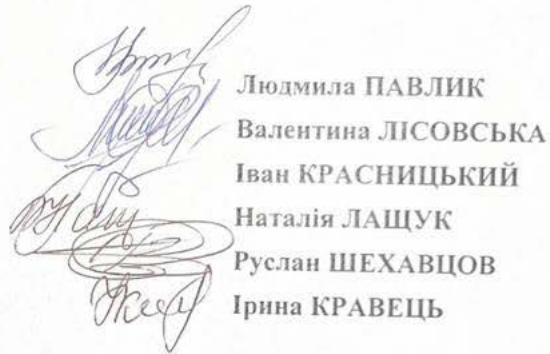 Людмила ПАВЛИК
Валентина ЛІСОВСЬКА
Іван КРАСНИЦЬКИЙ
Наталія ЛАЩУК
Руслан ШЕХАВЦОВ
Ірина КРАВЕЦЬ